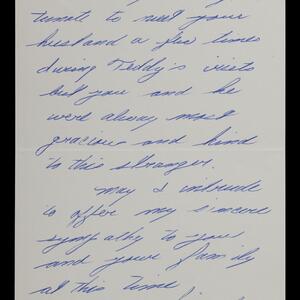 tunate to meet your
husband a few times
during Teddy's visits
but you and he
were always most
gracious and kind
to this stranger.
May I intrude
to offer my sincere
sympathy to you
and your family
at this time